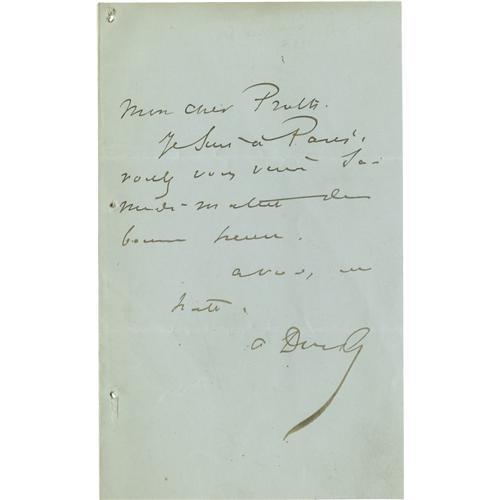 Mon cher Prath.
Je suis à Paris.
voulez vous venir Sa-
medi matin de
bonne heure.
a vous, en
hate.